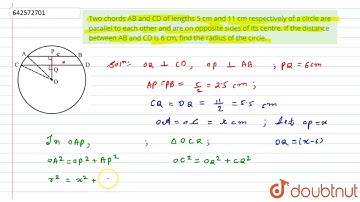 642572701
Two chords AB and CD of lengths 5 cm and 11 cm respectively of a circle are
parallel to each other and are on opposite sides of its centre. If the distance
between AB and CD is 6 cm, find the radius of the circle.
A P 5 B
C Q D
O
Solⁿ: OQ ⊥ CD, OP ⊥ AB ; PQ = 6cm
AP = PB = 5/2 = 2.5 cm ;
CQ = DQ = 11/2 = 5.5 cm
OA = OC = r cm ; Let OP = x
In OAP, ; △OCQ ; OQ = (x-6)
OA² = OP² + AP² OC² = OQ² + CQ²
r² = x² +
doubtnut